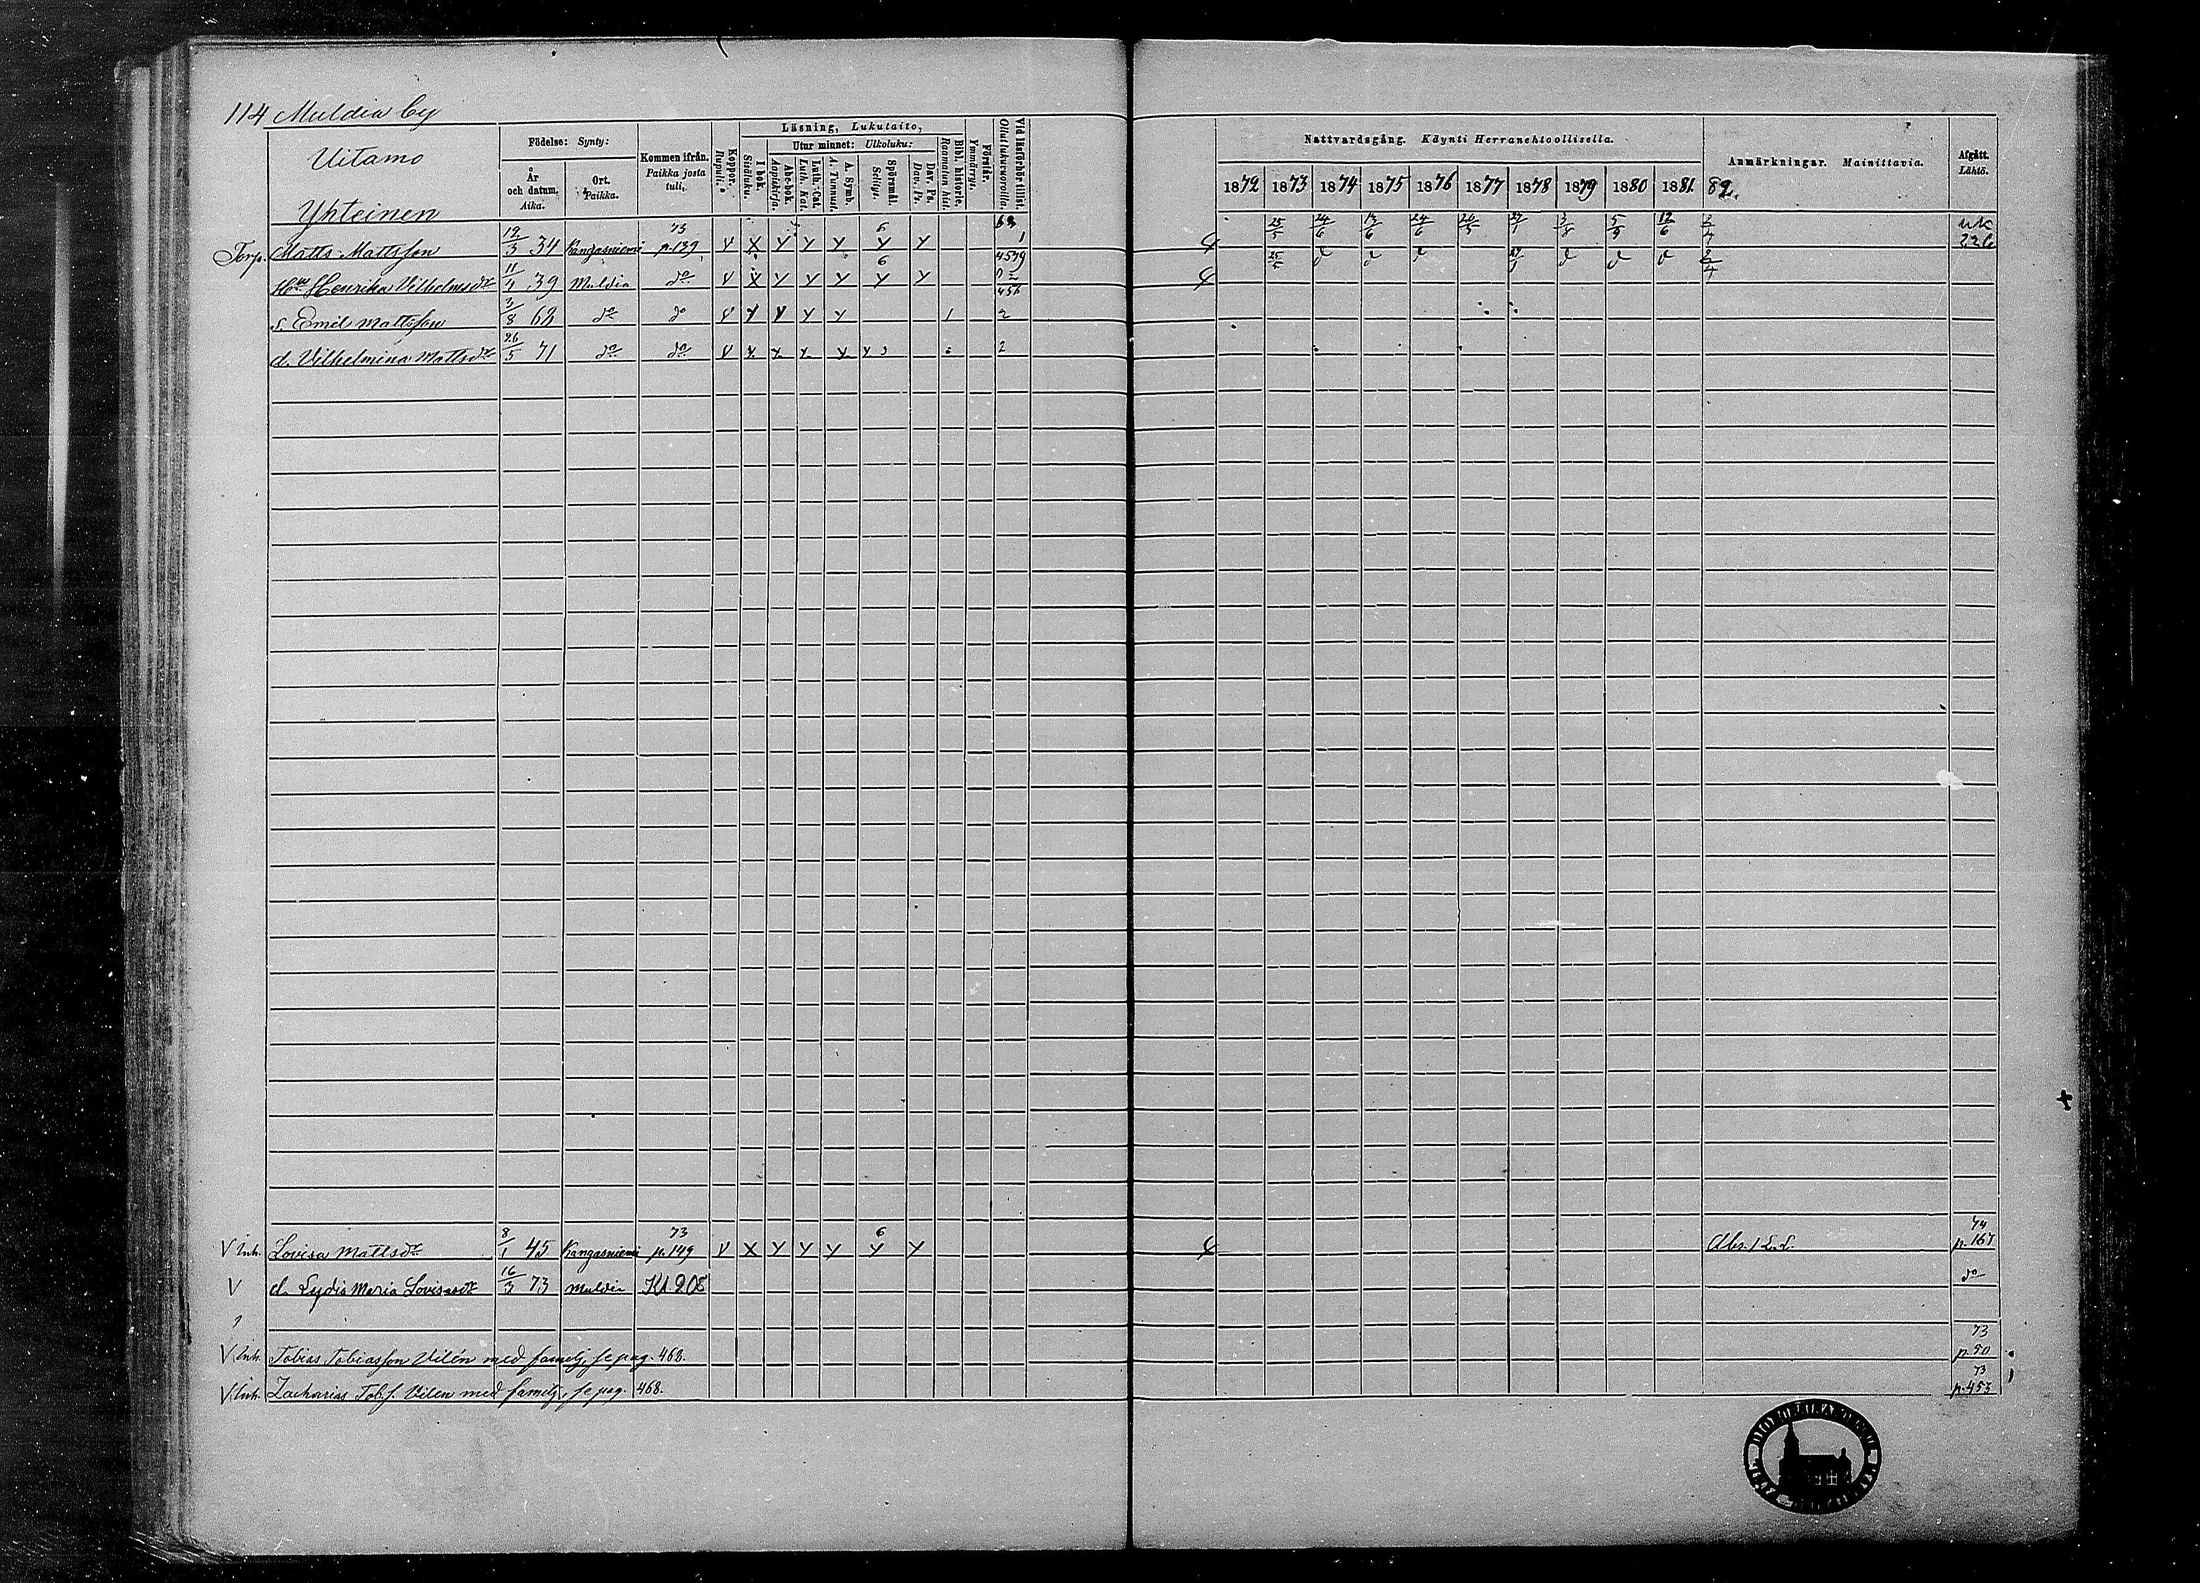 114 Muldia by
Uitamo
Yhteinen
Födelse: Synty:
År och datum. Aika.
Ort. Paikka.
Kommen ifrån. Paikka josta tuli.
Koppor. Rupuli.
Läsning, Lukutaito,
I bok. Sisäluku.
Utur minnet: Ulkoluku:
Abc-bok. Aapiskirja.
Luth. Cat. Luth. Kat.
A. Symb. A. Tunnust.
Spörsmål. Selitys.
Dav. Ps. Dav. Ps.
Bibl. historie. Raamatun hist.
Förstår. Ymmärrys.
Vid läsförhör tillst. Ollut lukuvuoroilla.
Nattvardsgång. Käynti Herranehtoollisella.
1872 1873 1874 1875 1876 1877 1878 1879 1880 1881 82.
Anmärkningar. Mainittavia.
Afgått. Lähtö.
Torp. Matts Mattsson 12/3 34 Kangasniemi 73 p.139 V X Y Y Y 6 Y Y 4 25/5 24/6 24/6 3/8 5/9 12/6 2/4 uk 226
Hu Henrika Vilhelmsdr 11/4 39 Muldia do V X Y Y Y 6 Y Y 4579 4 25/5
s. Emil Mattsson 3/8 62 do do V Y Y Y Y 1 456 2
d. Vilhelmina Mattsdr 26/5 71 do do V 2
V Inh. Lovisa Mattsdr 8/1 45 Kangasniemi 73 p.149 V X Y Y Y 6 Y Y 4 74 p.167
V d. Lydia Maria Lovisasdr 16/3 73 Muldia do
V Inh. Tobias Tobiasson Vilén med familj, se pag. 468. 73 p.50
V Inh. Zacharias Tob.s. Vilén med familj, se pag. 468. 73 p.453